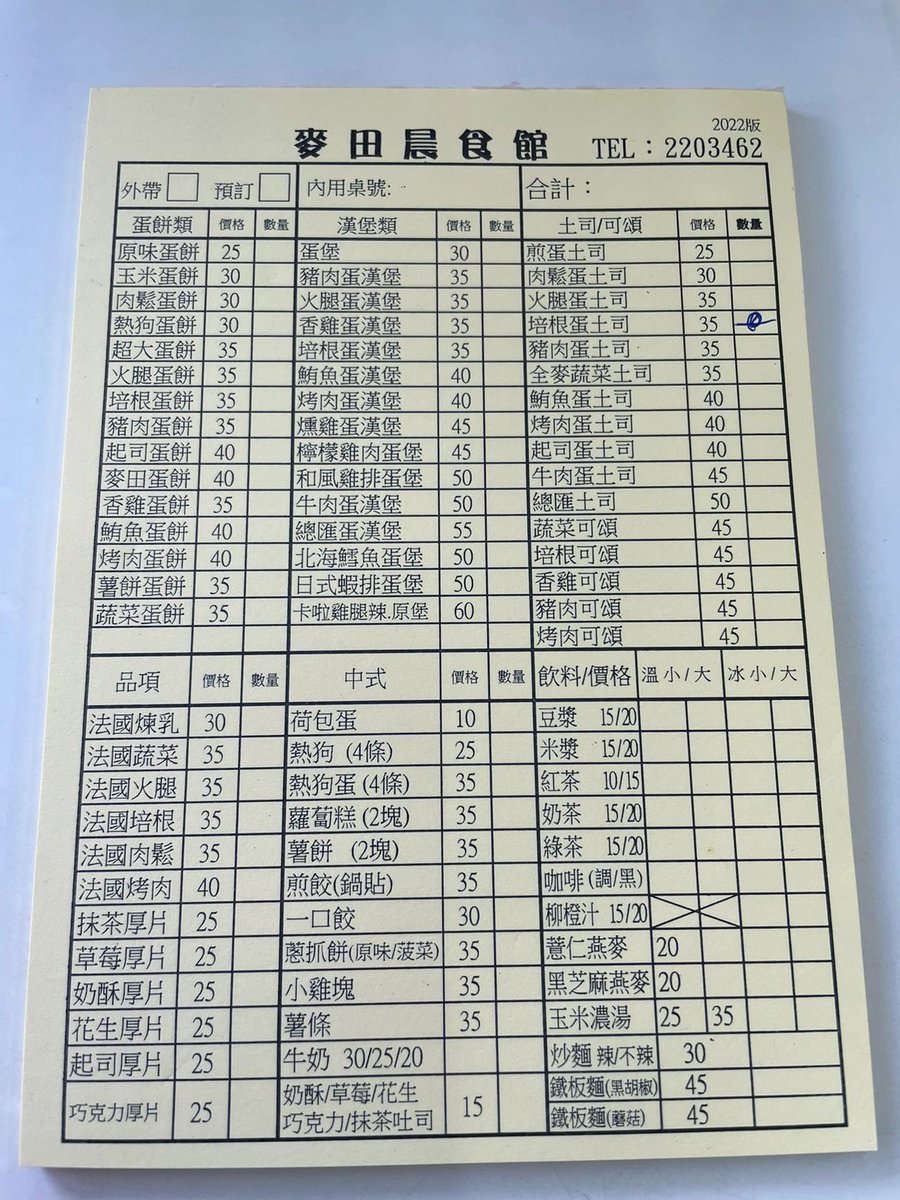 2022版
麥田晨食館 TEL：2203462
外帶 預訂 內用桌號: 合計：
蛋餅類 價格 數量 漢堡類 價格 數量 土司/可頌 價格 數量
原味蛋餅 25 蛋堡 30 煎蛋土司 25
玉米蛋餅 30 豬肉蛋漢堡 35 肉鬆蛋土司 30
肉鬆蛋餅 30 火腿蛋漢堡 35 火腿蛋土司 35
熱狗蛋餅 30 香雞蛋漢堡 35 培根蛋土司 35
超大蛋餅 35 培根蛋漢堡 35 豬肉蛋土司 35
火腿蛋餅 35 鮪魚蛋漢堡 40 全麥蔬菜土司 35
培根蛋餅 35 烤肉蛋漢堡 40 鮪魚蛋土司 40
豬肉蛋餅 35 燻雞蛋漢堡 45 烤肉蛋土司 40
起司蛋餅 40 檸檬雞肉蛋堡 45 起司蛋土司 40
麥田蛋餅 40 和風雞排蛋堡 50 牛肉蛋土司 45
香雞蛋餅 35 牛肉蛋漢堡 50 總匯土司 50
鮪魚蛋餅 40 總匯蛋漢堡 55 蔬菜可頌 45
烤肉蛋餅 40 北海鱈魚蛋堡 50 培根可頌 45
薯餅蛋餅 35 日式蝦排蛋堡 50 香雞可頌 45
蔬菜蛋餅 35 卡啦雞腿辣.原堡 60 豬肉可頌 45
烤肉可頌 45
品項 價格 數量 中式 價格 數量 飲料/價格 溫小/大 冰小/大
法國煉乳 30 荷包蛋 10 豆漿 15/20
法國蔬菜 35 熱狗 (4條) 25 米漿 15/20
法國火腿 35 熱狗蛋(4條) 35 紅茶 10/15
法國培根 35 蘿蔔糕(2塊) 35 奶茶 15/20
法國肉鬆 35 薯餅 (2塊) 35 綠茶 15/20
法國烤肉 40 煎餃(鍋貼) 35 咖啡(調/黑)
抹茶厚片 25 一口餃 30 柳橙汁 15/20
草莓厚片 25 蔥抓餅(原味/菠菜) 35 薏仁燕麥 20
奶酥厚片 25 小雞塊 35 黑芝麻燕麥 20
花生厚片 25 薯條 35 玉米濃湯 25 35
起司厚片 25 牛奶 30/25/20 炒麵 辣/不辣 30
巧克力厚片 25 奶酥/草莓/花生 15 鐵板麵(黑胡椒) 45
巧克力/抹茶吐司 鐵板麵(蘑菇) 45